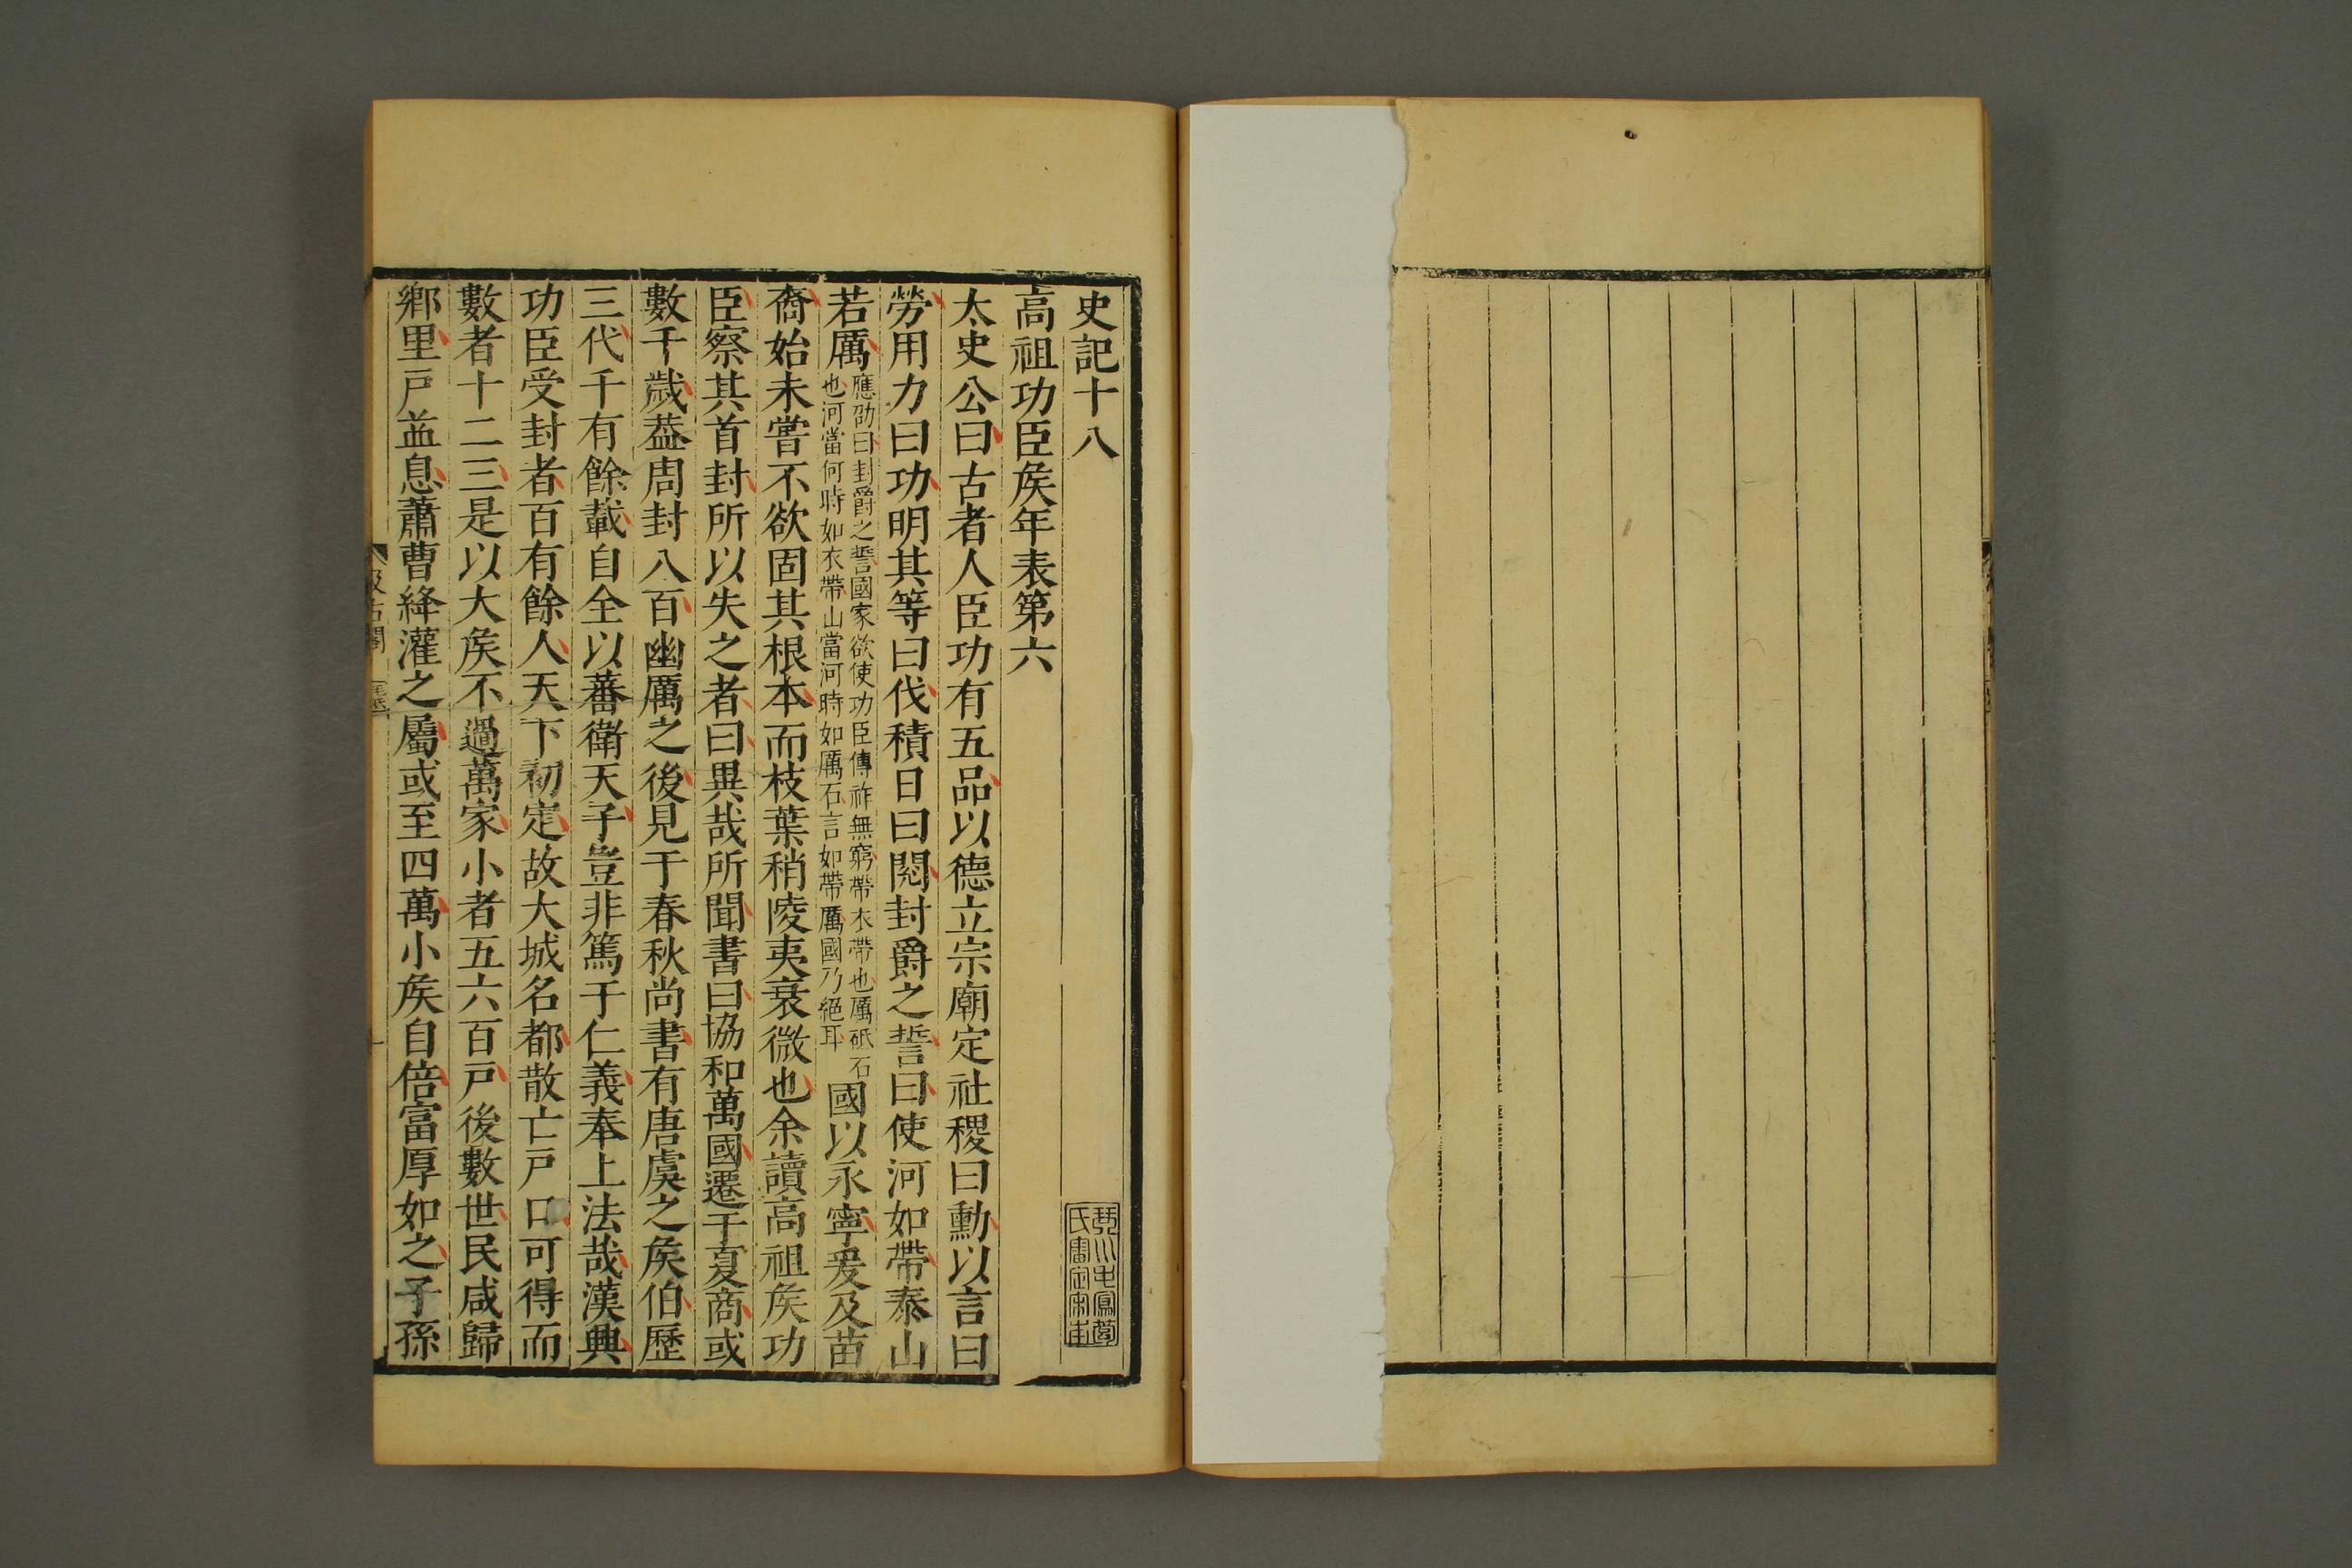 史記十八
高祖功臣矦年表第六
太史公曰古者人臣功有五品以德立宗廟定社稷曰勳以言曰
勞用力曰功明其等曰伐積日曰閱封爵之誓曰使河如帶泰山
若厲應劭曰封爵之誓國家欲使功臣傳祚無窮帶衣帶也厲砥石也河當何時如衣帶山當河時如厲石言如帶厲國乃絕耳國以永寧爰及苗
裔始未嘗不欲固其根本而枝葉稍陵夷衰微也余讀高祖矦功
臣察其首封所以失之者曰異哉所聞書曰協和萬國遷于夏商或
數千歲葢周封八百幽厲之後見于春秋尚書有唐虞之矦伯歷
三代千有餘載自全以蕃衛天子豈非篤于仁義奉上法哉漢興
功臣受封者百有餘人天下初定故大城名都散亡戸口可得而
數者十二三是以大矦不過萬家小者五六百戸後數世民咸歸
鄉里戸益息蕭曹絳灌之屬或至四萬小矦自倍富厚如之子孫
汲古閣